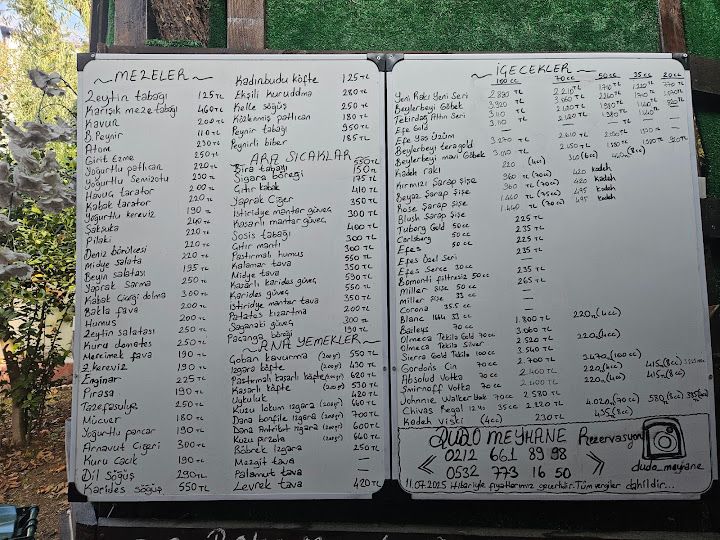 ~ MEZELER ~
Zeytin tabağı 125 TL
Karışık meze tabağı 460 TL
Kavun 200 TL
B. Peynir 110 TL
Atom 230 TL
Girit Ezme 250 TL
Yoğurtlu patlıcan 220 TL
Yoğurtlu Semizotu 230 TL
Havuç tarator 200 TL
Kabak tarator 220 TL
Yoğurtlu kereviz 190 TL
Şakşuka 240 TL
Pilaki 220 TL
Deniz börülcesi 220 TL
Midye salata 220 TL
Beyin salatası 195 TL
Yaprak Sarma 250 TL
Kabak Çiçeği dolma 300 TL
Bakla fava 200 TL
Humus 200 TL
Zeytin salatası 250 TL
Kuru domates 250 TL
Mercimek fava 190 TL
Z. kereviz 190 TL
Enginar 225 TL
Pırasa 190 TL
Tazefasulye 250 TL
Mücver 180 TL
Yoğurtlu pancar 190 TL
Arnavut Ciğeri 300 TL
Kuru Cacık 190 TL
Dil Söğüş 290 TL
Karides söğüş 550 TL
Kadınbudu köfte 125 TL
Ekşili kuruddma 280 TL
Kelle söğüş 250 TL
Közlenmiş patlıcan 180 TL
Peynir tabağı 950 TL
Peynirli biber 185 TL
~ ARA SICAKLAR ~
Bira tabağı 550 TL
Sigara böreği 150 TL
Çıtır kabak 175 TL
Yaprak Ciğer 410 TL
İstiridye mantar güveç 350 TL
Kaşarlı mantar güveç 300 TL
Sosis tabağı 400 TL
Çıtır mantı 300 TL
Pastırmalı humus 360 TL
Kalamar tava 550 TL
Midye tava 350 TL
Kaşarlı karides güveç 590 TL
Karides güveç 550 TL
İstiridye mantar tava 350 TL
Patates kızartma 200 TL
Saganaki güveç 300 TL
Paçanga böreği 190 TL
~ ANA YEMEKLER ~
Çoban kavurma (200gr) 550 TL
Izgara köfte (200gr) 430 TL
Pastırmalı kaşarlı köfte (200gr) 620 TL
Kaşarlı köfte (200gr) 530 TL
Uykuluk 420 TL
Kuzu lokum ızgara (200gr) 640 TL
Dana bonfile ızgara (200gr) 700 TL
Dana Antribot ızgara (200gr) 600 TL
Kuzu pirzola (200gr) 660 TL
Böbrek ızgara 250 TL
Mezgit tava —
Palamut tava —
Levrek tava 420 TL
~ İÇECEKLER ~
100 cc 70 cc 50 cc 35 cc 20 cc
Yeni Rakı Yeni Seri
Beylerbeyi Göbek
Tekirdağ Altın Seri
Efe Gold
Efe Yaş Üzüm
Beylerbeyi teragold
Beylerbeyi mavi Göbek
Kadeh rakı 220 (4cc)
Kırmızı Şarap Şişe 960 TL (70cc) 420 Kadeh
Beyaz Şarap Şişe 960 TL (70cc) 420 Kadeh
Rose Şarap Şişe 1.440 TL (75cc) 495 Kadeh
Blush Şarap Şişe 1.440 TL (70cc) 495 Kadeh
Tuborg Gold 50 cc 225 TL
Carlsberg 50 cc 235 TL
Efes 50 cc 225 TL
Efes Özel Seri —
Efes Serce 50 cc 235 TL
Bomonti filtresiz 50 cc 235 TL
Miller Şişe 50 cc 265 TL
Miller Şişe 33 cc —
Corona 35.5 cc —
Blanc 1664 33 cc —
Baileys 70 cc 1.800 TL 220 TL (4cc)
Olmeca Tekila Gold 70 cc 3.060 TL
Olmeca Tekila Silver 2.520 TL 220 TL (4cc)
Sierra Gold Tekila 100 cc 3.540 TL
Gordons Cin 70 cc 2.700 TL 2670 TL (100 cc)
Absolud Votka 70 cc 2.400 TL 220 TL (4cc) 415 TL (8cc)
Smirnoff Votka 70 cc 2.400 TL 220 TL (4cc) 415 TL (8cc)
Johnnie Walker Black 70 cc 2.580 TL
Chivas Regal 12 Yıl 35 cc 2.120 TL 4.020 TL (70cc) 580 (8cc)
Kadeh Viski (4cc) 230 TL 435 TL (8cc)
DUDO MEYHANE Rezervasyon
0212 661 89 98
0532 773 16 50
dudo_meyhane
11.07.2025 itibariyle fiyatlarımız geçerlidir. Tüm vergiler dahildir...